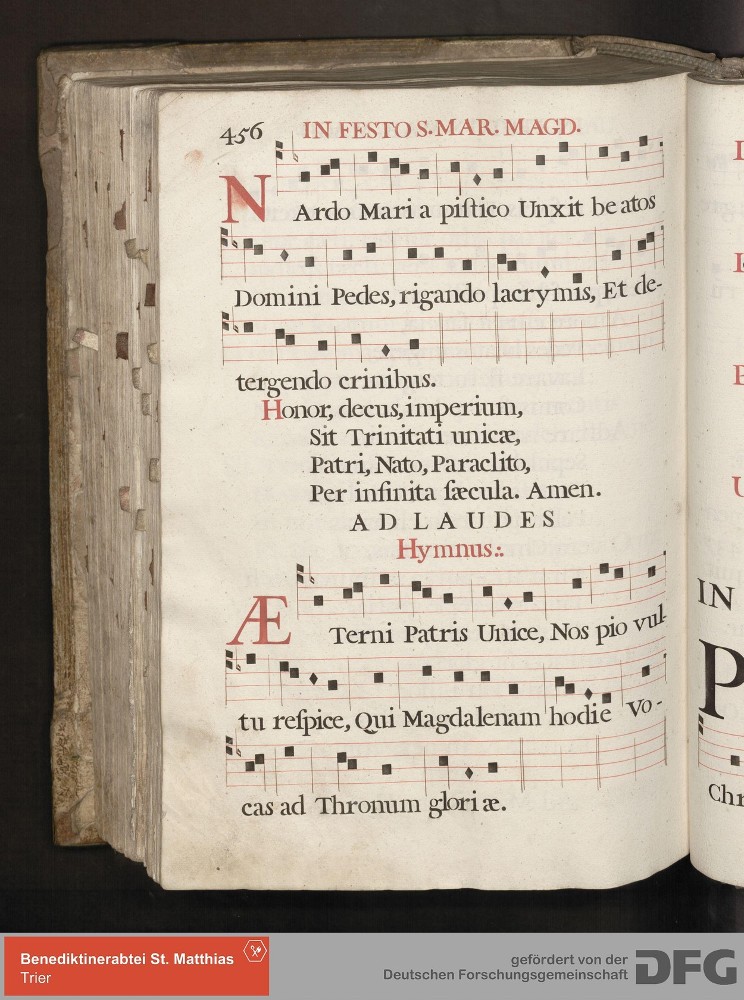 456 IN FESTO S. MAR. MAGD.
NArdo Maria piſtico Unxit beatos
Domini Pedes, rigando lacrymis, Et de-
tergendo crinibus.
Honor, decus, imperium,
Sit Trinitati unicæ,
Patri, Nato, Paraclito,
Per infinita ſæcula. Amen.
AD LAUDES
Hymnus:.
ÆTerni Patris Unice, Nos pio vul-
tu reſpice, Qui Magdalenam hodie Vo-
cas ad Thronum gloriæ.
IN
P
Chr
Benediktinerabtei St. Matthias
Trier
gefördert von der
Deutschen Forschungsgemeinschaft
DFG